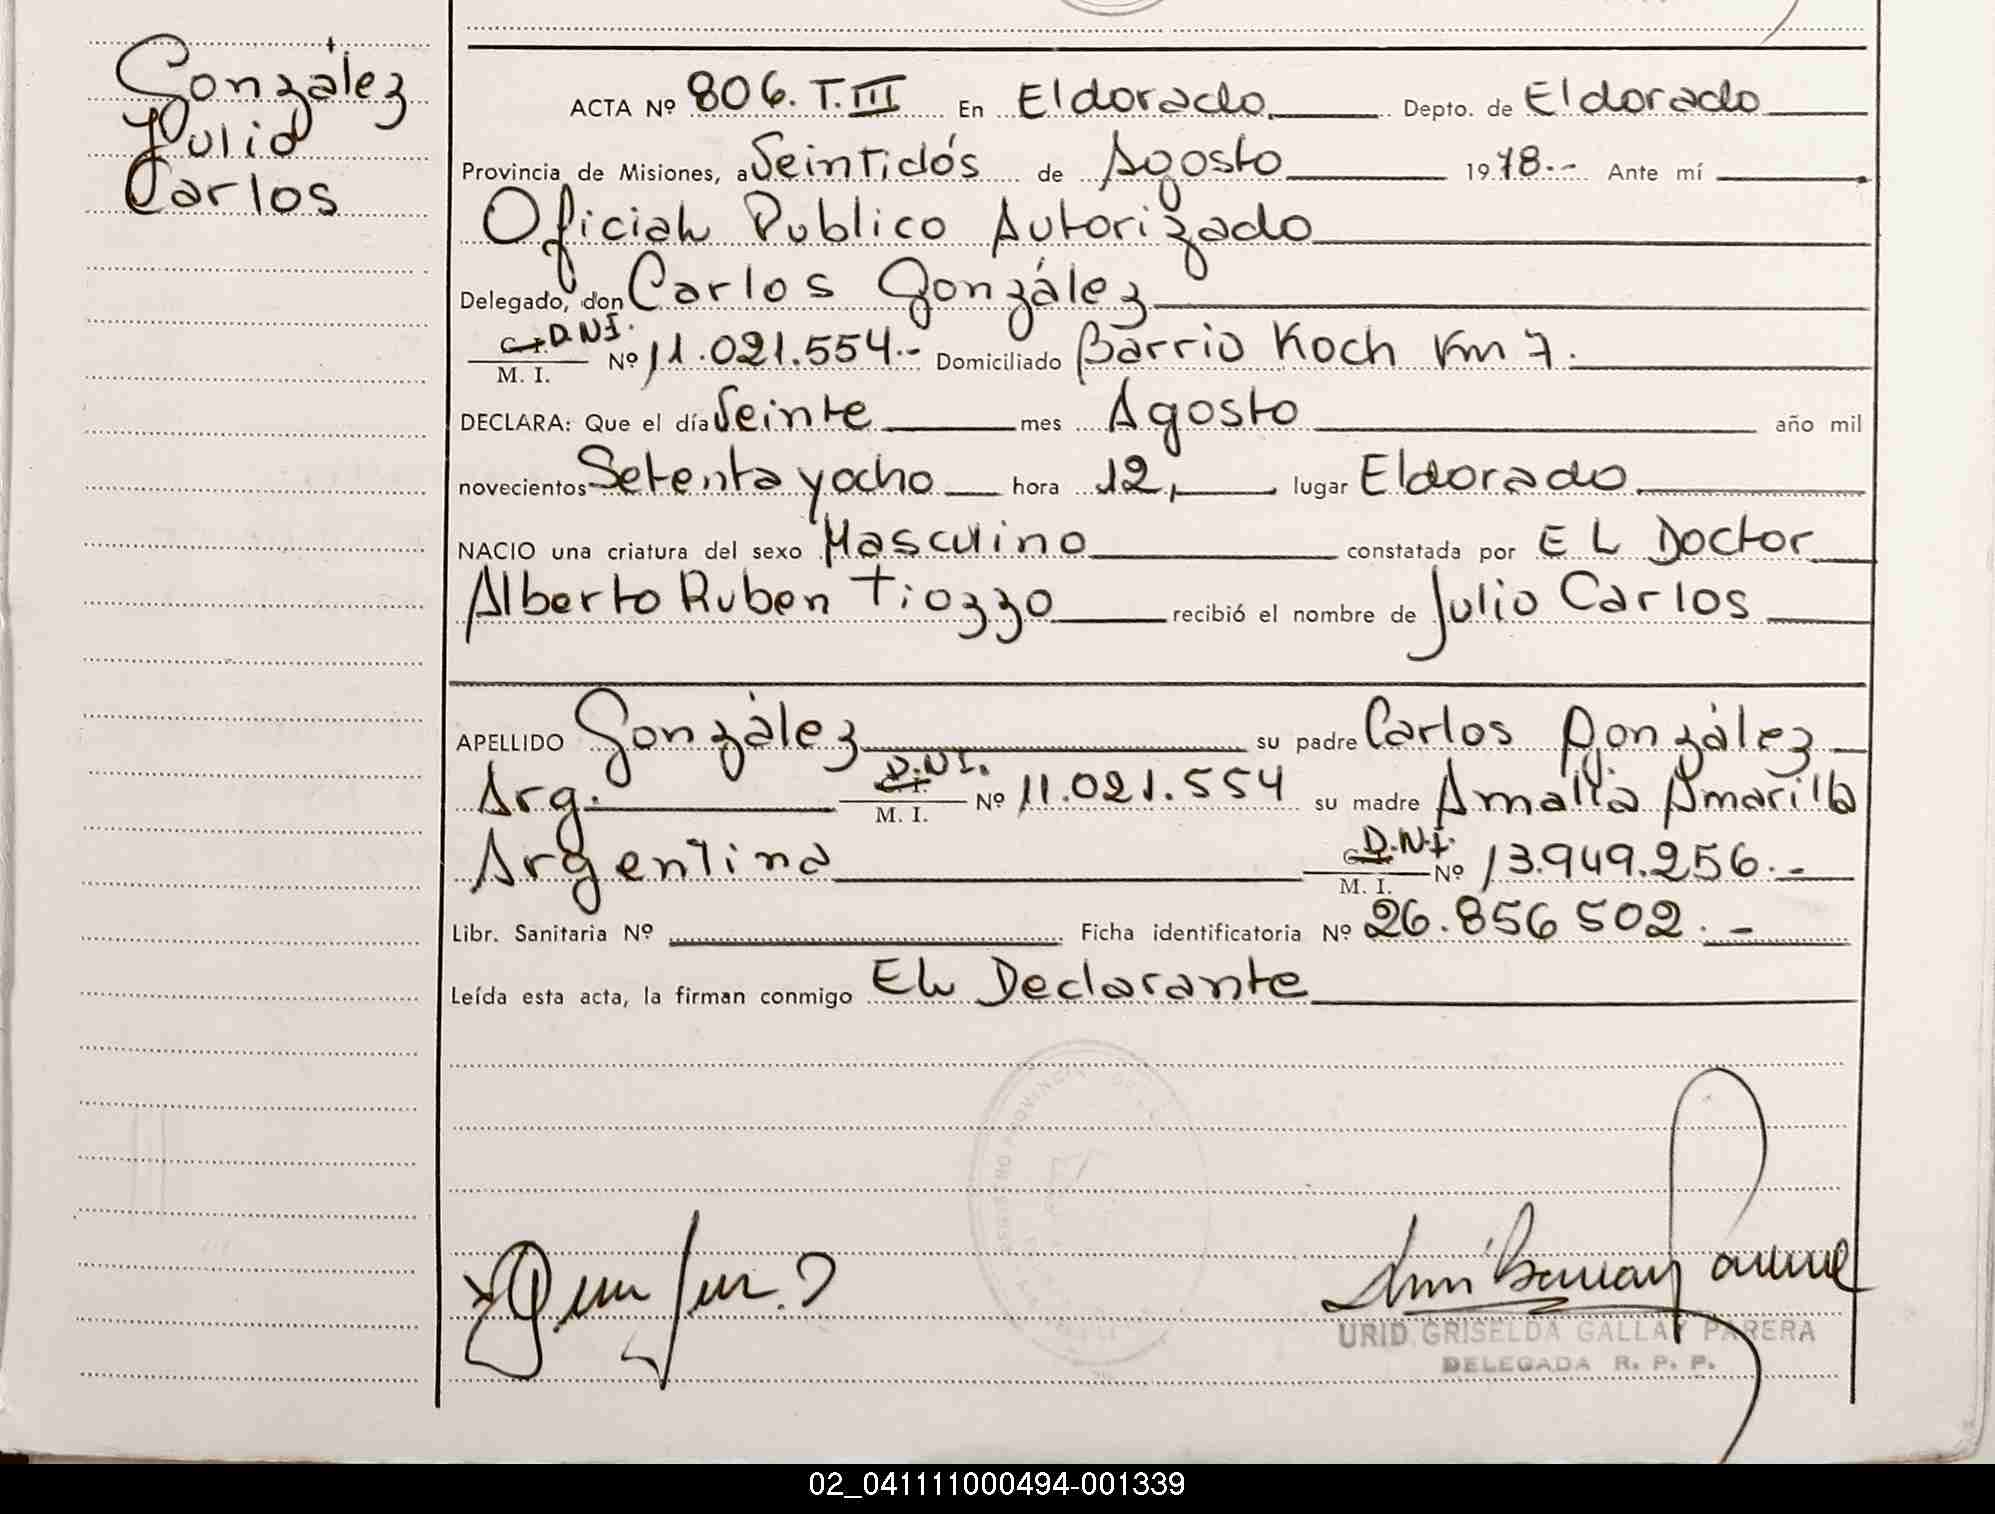 González
Julio
Carlos
ACTA Nº 806. T. III En Eldorado Depto. de Eldorado
Provincia de Misiones, a Veintidós de Agosto 1978.- Ante mí
Oficial Publico Autorizado
Delegado, don Carlos González
C. I. D.N.I.
M. I. Nº 11.021.554.- Domiciliado Barrio Koch Km 7.
DECLARA: Que el día Veinte mes Agosto año mil
novecientos Setenta y ocho hora 12, lugar Eldorado
NACIO una criatura del sexo Masculino constatada por EL Doctor
Alberto Ruben Tiozzo recibió el nombre de Julio Carlos
APELLIDO González su padre Carlos González
Arg. C. I. D.N.I. M. I. Nº 11.021.554 su madre Amalia Amarilla
Argentina C. I. D.N.I. M. I. Nº 13.949.256.-
Libr. Sanitaria Nº Ficha identificatoria Nº 26.856 502.-
Leída esta acta, la firman conmigo El Declarante
URID GRISELDA GALLAY PARERA
DELEGADA R. P. P.
02_041111000494-001339